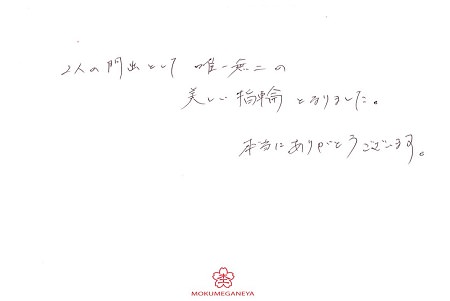 2人の門出として 唯一無二の
美しい指輪となりました。
本当にありがとうございます。
MOKUMEGANEYA